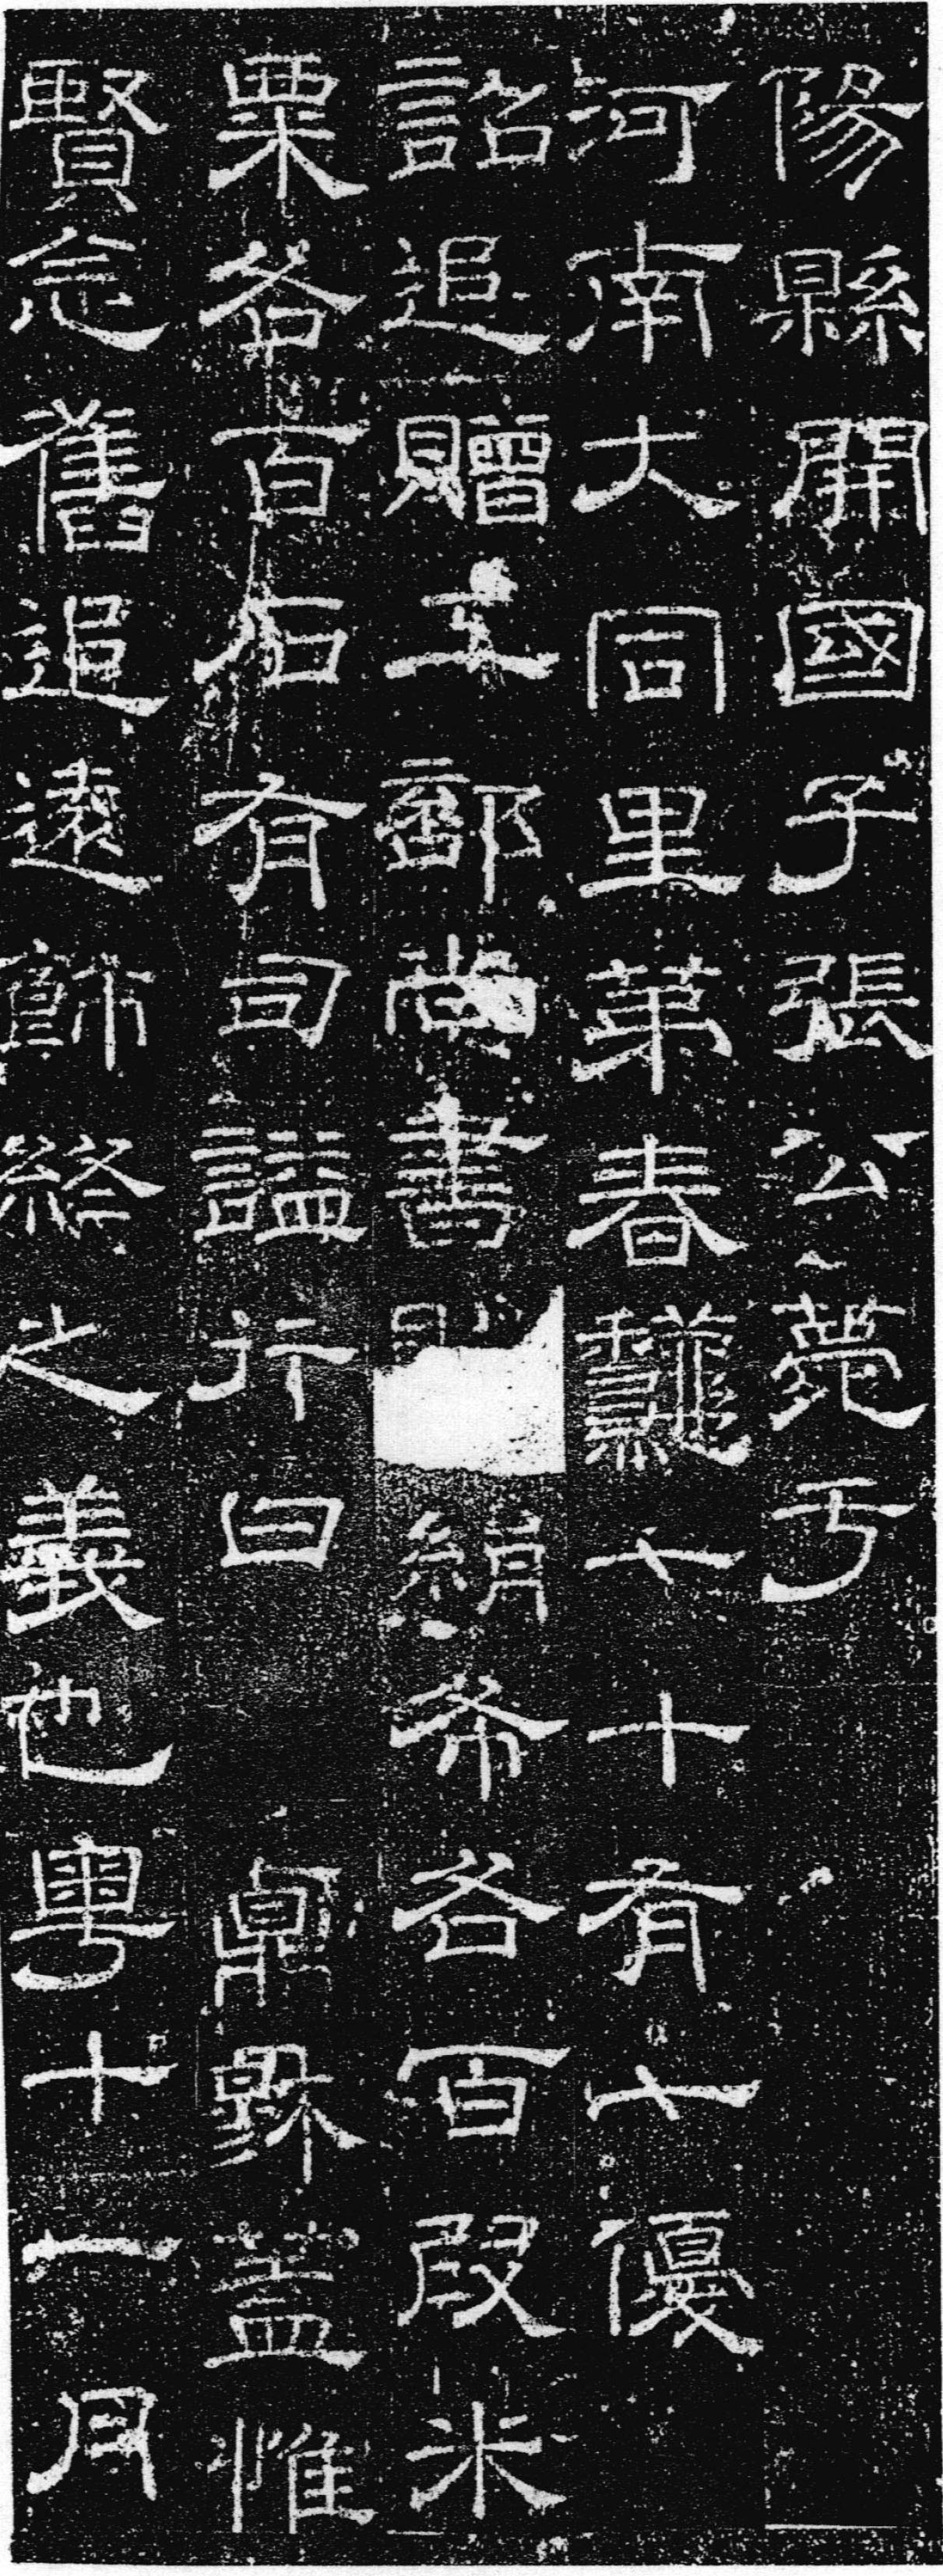 陽縣開國子張公薨于
河南大同里第春龝七十有六優
詔追贈工部尚書絹布各百段米
粟各百石有司諡行曰貞穆蓋惟
賢念舊追遠飾終之義也粵十一月